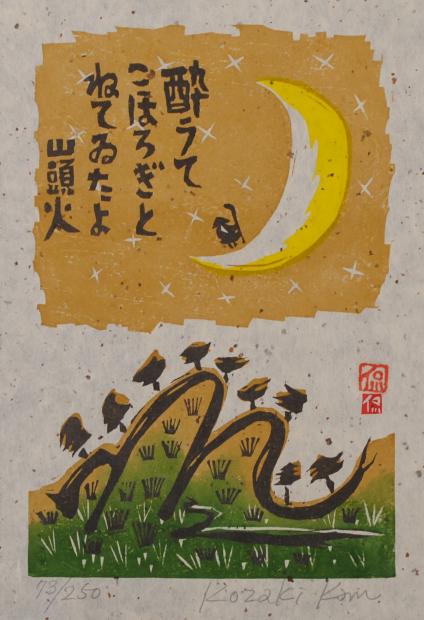 酔うて
こほろぎと
ねてゐたよ
山頭火
侃
侃
73/250
Kozaki Kan